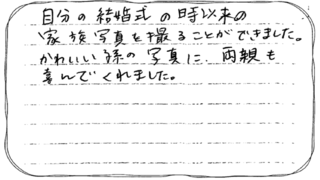 自分の結婚式の時以来の
家族写真を撮ることができました。
かわいい孫の写真に、両親も
喜んでくれました。